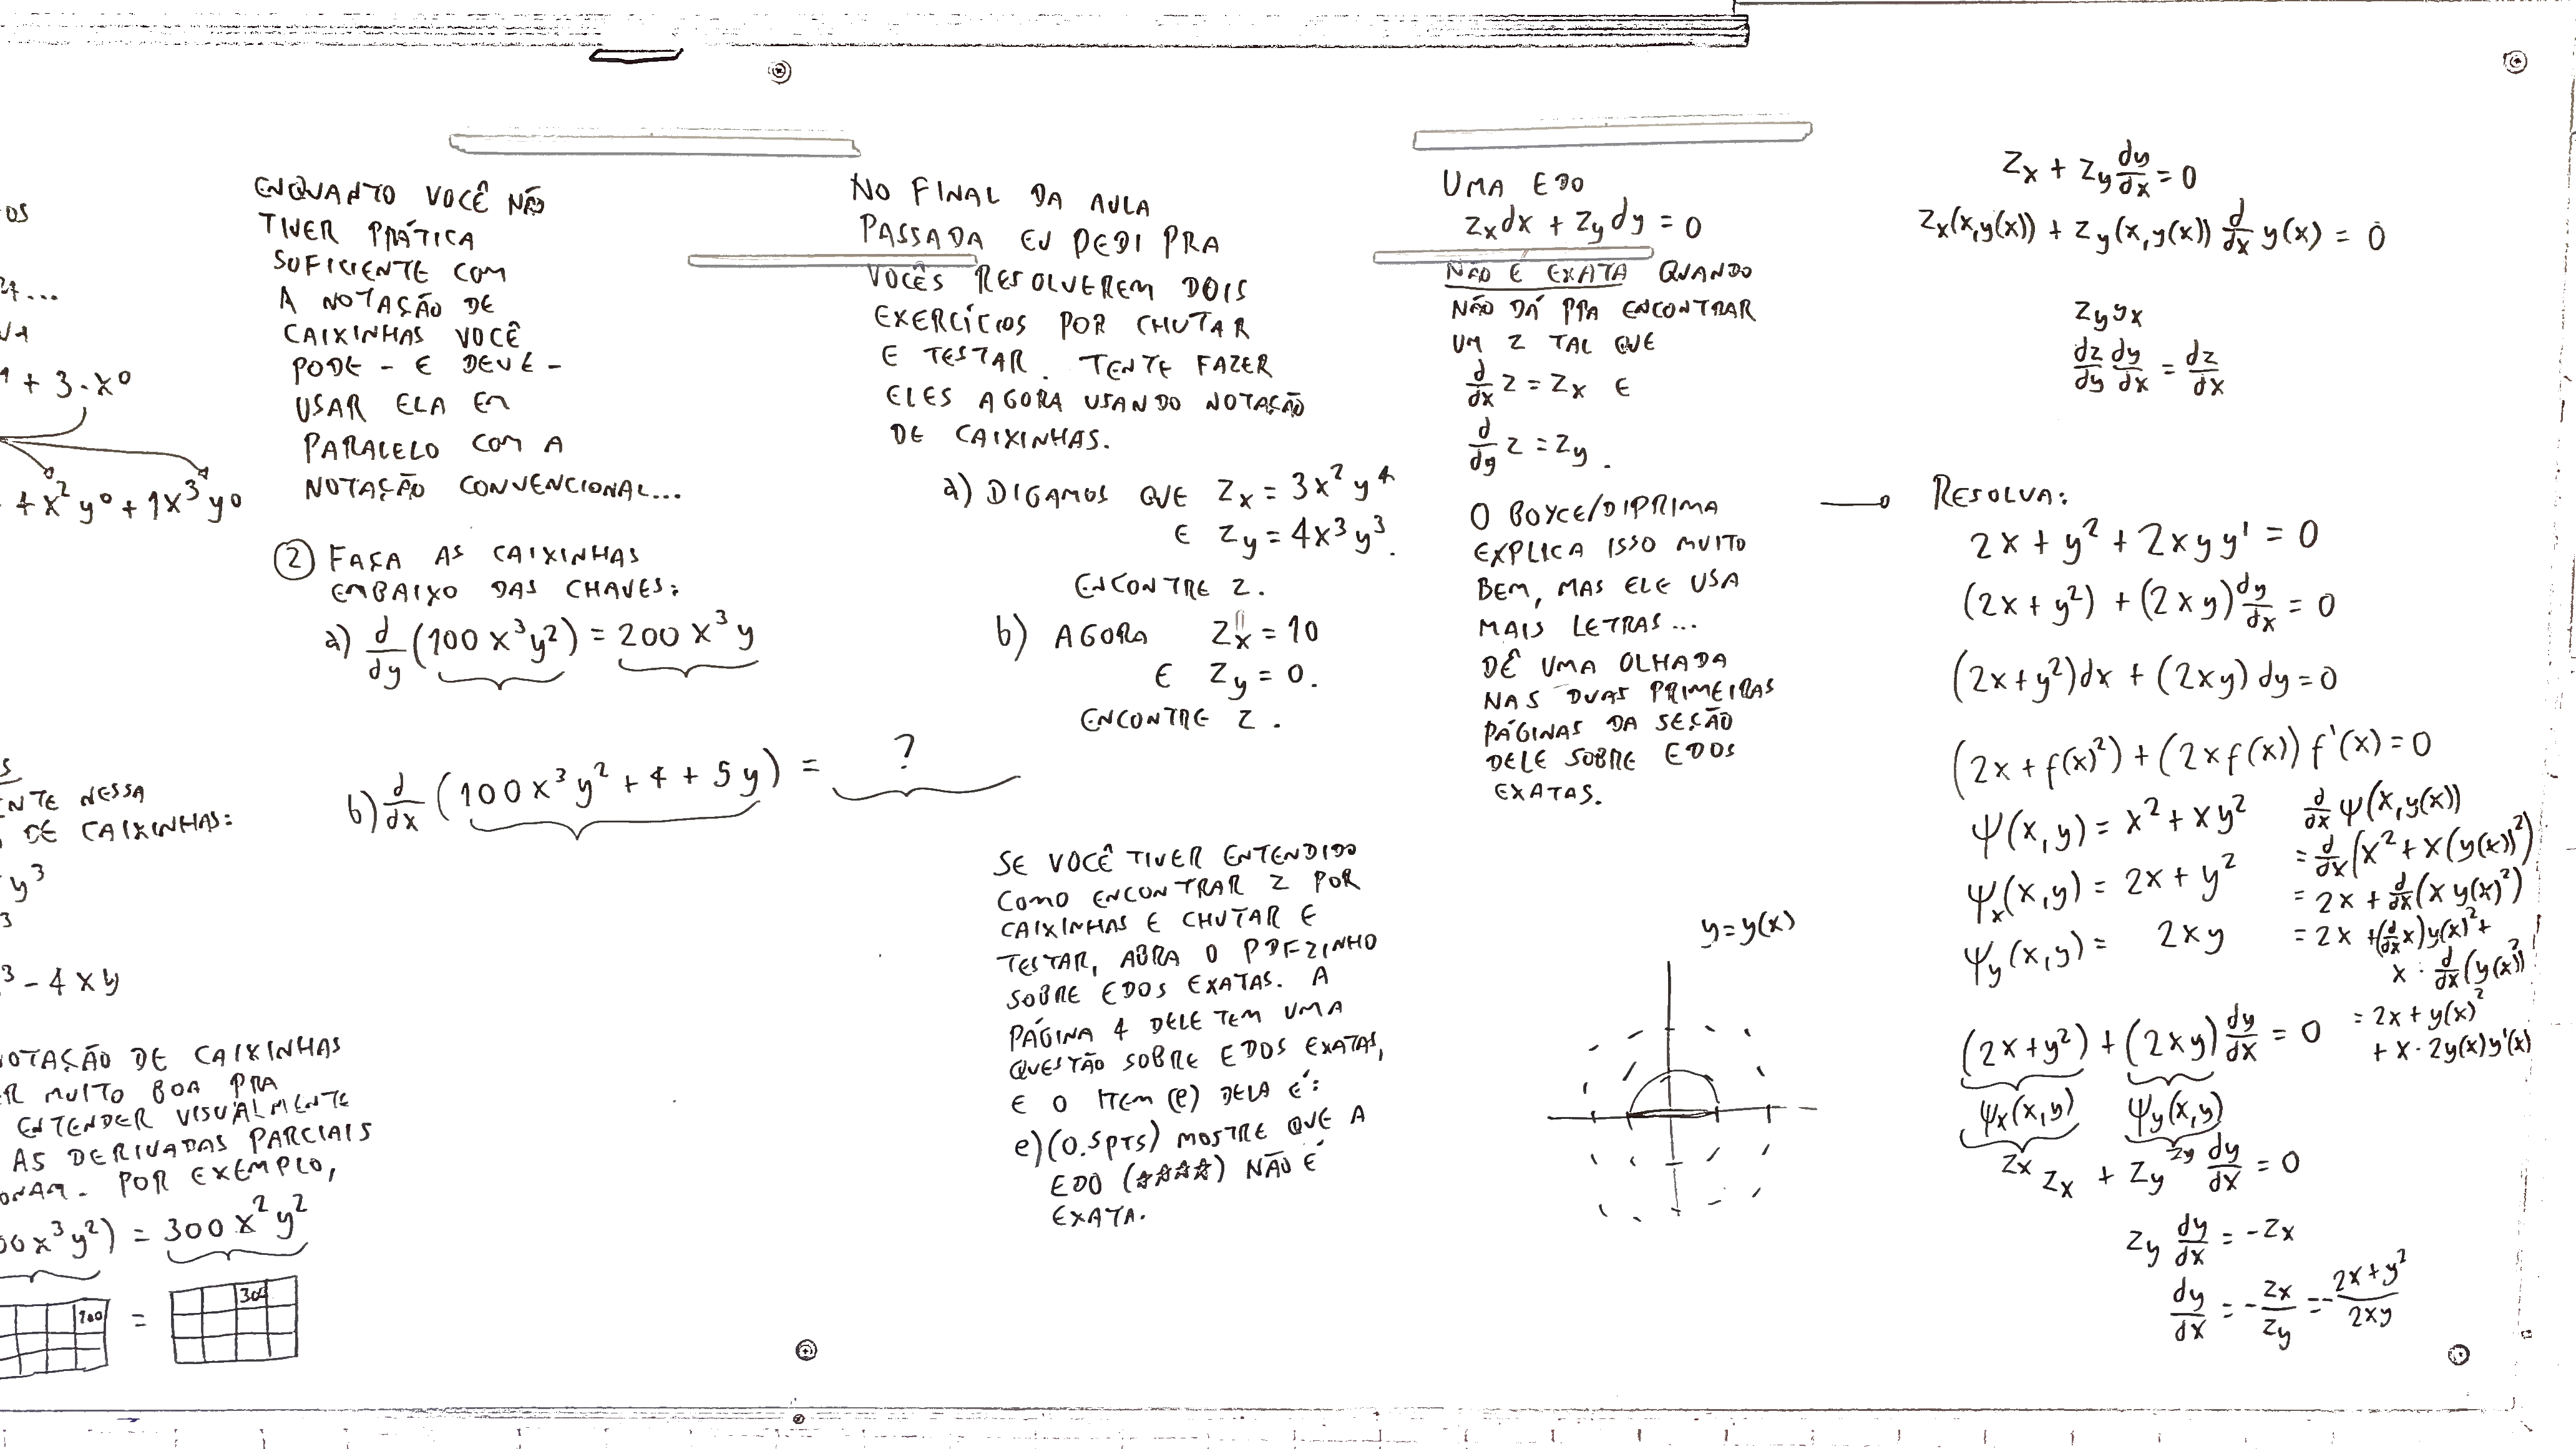 OS
VA
+ 3·x⁰
+ x²y⁰ + 1x³y⁰
S
NTE NESSA
DE CAIXINHAS:
y³
3
³ - 4xy
NOTAÇÃO DE CAIXINHAS
R MUITO BOA PRA
ENTENDER VISUALMENTE
AS DERIVADAS PARCIAIS
ONAM. POR EXEMPLO,
00x³y²) = 300x²y²
100 = 300
ENQUANTO VOCÊ NÃO
TIVER PRÁTICA
SUFICIENTE COM
A NOTAÇÃO DE
CAIXINHAS VOCÊ
PODE - E DEVE -
USAR ELA EM
PARALELO COM A
NOTAÇÃO CONVENCIONAL...
② FAÇA AS CAIXINHAS
EMBAIXO DAS CHAVES:
a) d/dy (100x³y²) = 200x³y
b) d/dx (100x³y² + 4 + 5y) = ?
NO FINAL DA AULA
PASSADA EU PEDI PRA
VOCÊS RESOLVEREM DOIS
EXERCÍCIOS POR CHUTAR
E TESTAR. TENTE FAZER
ELES AGORA USANDO NOTAÇÃO
DE CAIXINHAS.
a) DIGAMOS QUE Zx = 3x²y⁴
E Zy = 4x³y³.
ENCONTRE Z.
b) AGORA Zx = 10
E Zy = 0.
ENCONTRE Z.
SE VOCÊ TIVER ENTENDIDO
COMO ENCONTRAR Z POR
CAIXINHAS E CHUTAR E
TESTAR, ABRA O PDFZINHO
SOBRE EDOS EXATAS. A
PÁGINA 4 DELE TEM UMA
QUESTÃO SOBRE EDOS EXATAS,
E O ITEM (e) DELA É:
e) (0.5 PTS) MOSTRE QUE A
EDO (☆☆☆☆) NÃO É
EXATA.
UMA EDO
Zx dx + Zy dy = 0
NÃO É EXATA QUANDO
NÃO DÁ PRA ENCONTRAR
UM Z TAL QUE
d/dx Z = Zx E
d/dy Z = Zy.
O BOYCE/DIPRIMA
EXPLICA ISSO MUITO
BEM, MAS ELE USA
MAIS LETRAS...
DÊ UMA OLHADA
NAS DUAS PRIMEIRAS
PÁGINAS DA SEÇÃO
DELE SOBRE EDOS
EXATAS.
y = y(x)
Zx + Zy dy/dx = 0
Zx(x,y(x)) + Zy(x,y(x)) d/dx y(x) = 0
Zy yx
dz/dy dy/dx = dz/dx
RESOLVA:
2x + y² + 2xyy' = 0
(2x + y²) + (2xy) dy/dx = 0
(2x + y²)dx + (2xy)dy = 0
(2x + f(x)²) + (2x f(x)) f'(x) = 0
Ψ(x,y) = x² + xy²
Ψx(x,y) = 2x + y²
Ψy(x,y) = 2xy
d/dx Ψ(x,y(x))
= d/dx (x² + x(y(x))²)
= 2x + d/dx (x y(x)²)
= 2x + (d/dx x) y(x)² +
x · d/dx (y(x)²)
= 2x + y(x)²
+ x · 2y(x)y'(x)
(2x + y²) + (2xy) dy/dx = 0
Ψx(x,y) Ψy(x,y)
Zx Zy
Zx + Zy dy/dx = 0
Zy dy/dx = -Zx
dy/dx = - Zx/Zy = - (2x + y²)/(2xy)